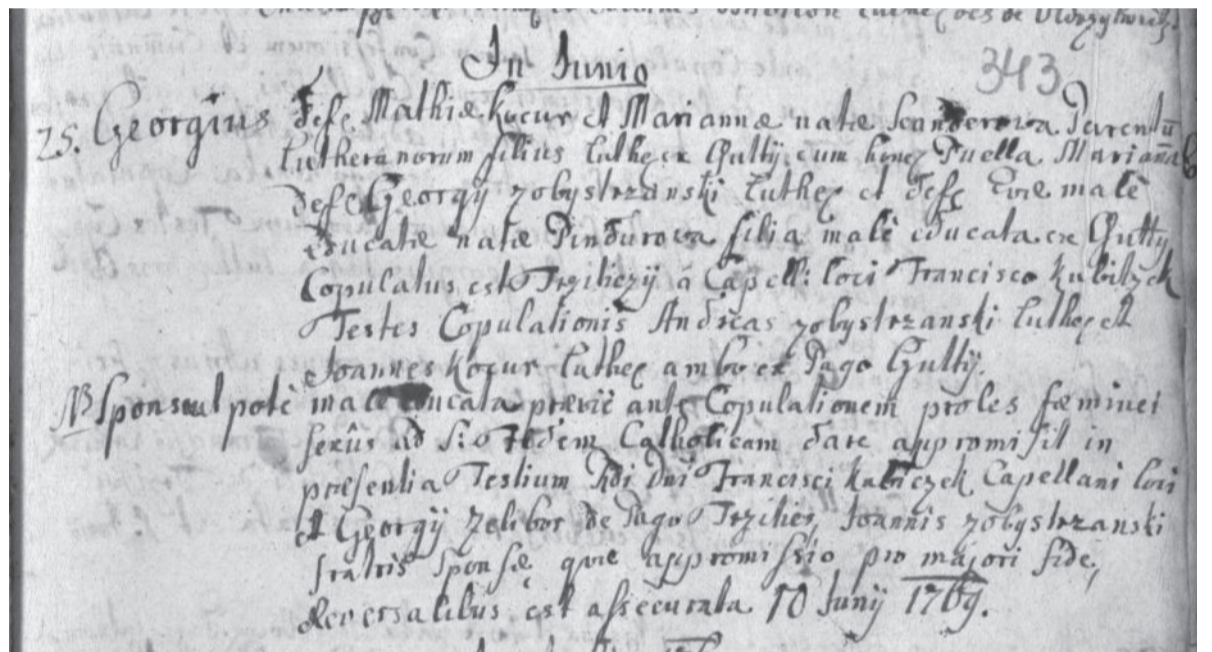 In Junio
343
25. Georgius Defc Mathiæ Kocur et Mariannæ natæ Scanderowa Parentū
Lutheranorum filius Luthec ex Gutty, cum honec Puella Mariaña
defc Georgij zobystrzanski Luthec et defc Evæ malè
educatæ natæ Pindurowa filia malè educata ex Gutty
Copulatus est Trziliczij â Capell: loci Francisco Kubitzek
Testes Copulationis Andreas zobystrzanski Luthec et
Joannes Kocur Luthec ambo ex Pago Gutty.
NB Sponsa ut potè malè educata præviè ante Copulationem proles fæminei
sexûs ad S: Fidem Catholicam dare appromisit in
præsentia Testium Rdi Dni Francisci Kubiczek Capellani loci
et Georgij Zelibor de Pago Trziliez, Joannis zobystrzanski
fratris Sponsę quæ appromissio pro majori fide,
Reversalibus est assecurata 10 Junij 1769.